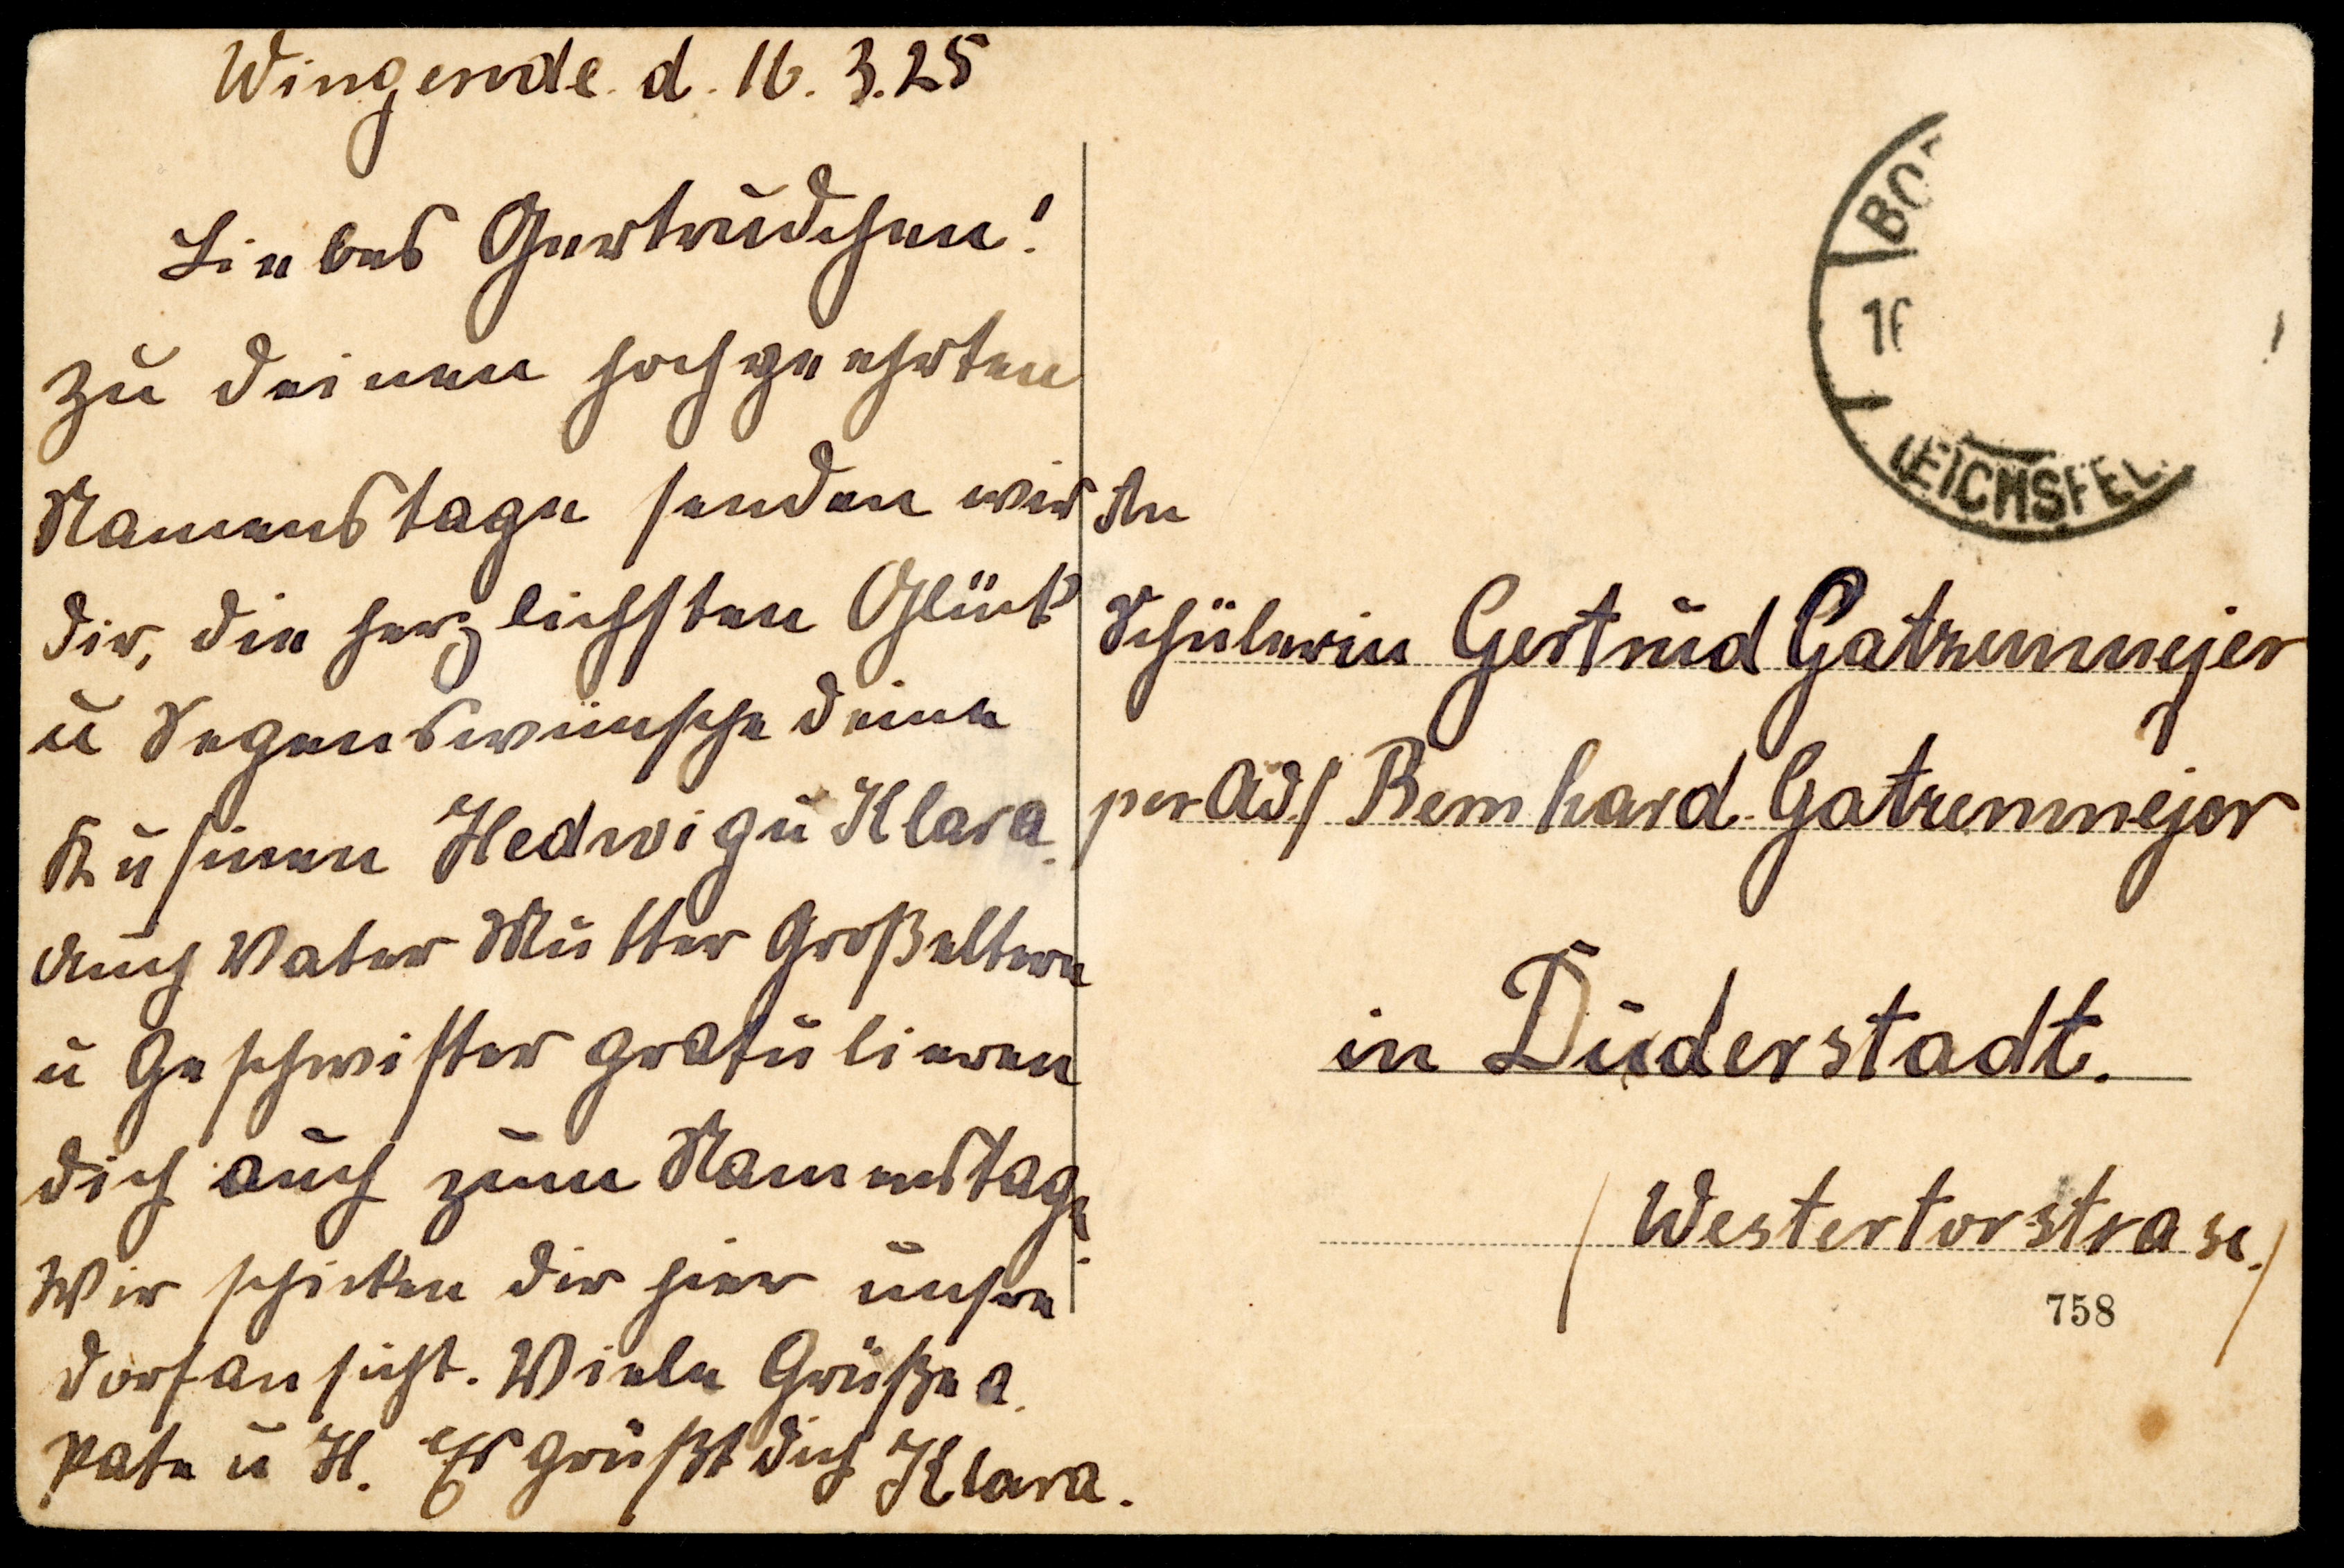 Wingerode. d. 16. 3. 25
Liebes Gertrudchen!
Zu deinen hochgeehrten
Namenstage senden wir
dir, die herzlichsten Glück
u Segenswünsche deine
Kusinen Hedwig u Klara.
Auch Vater Mutter Großeltern
u Geschwister gratulieren
dich auch zum Namenstage.
Wir schicken dir hier unsre
Dorfansicht. Viele Grüße a.
Pate u H. Es grüßt dich Klara.
BO
16
EICHSFEL
An
Schülerin Gertrud Gatzenmejer
per Ad/ Bernhard Gatzenmejer
in Duderstadt.
/ Westertorstrase. /
758